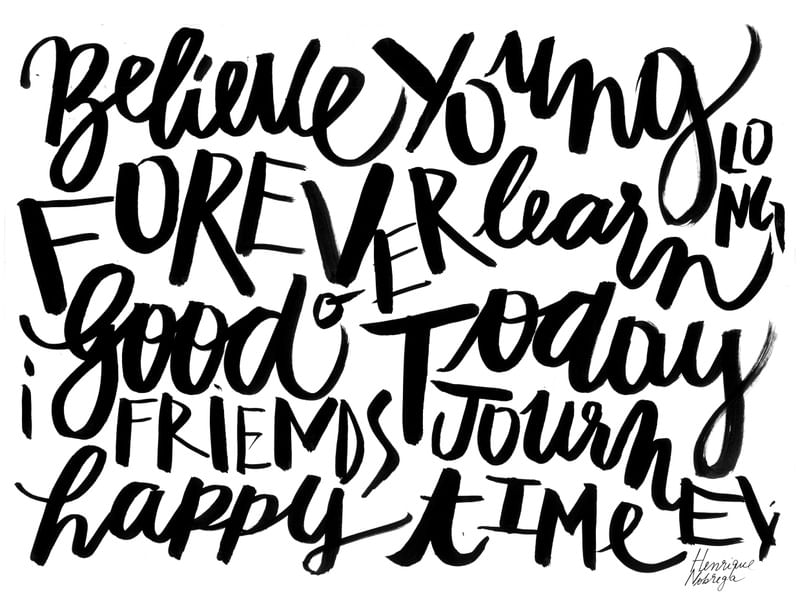 Believe Young
FOREVER learn LONG
good Today
i FRiENDS JOURNEY
happy tIMe
Henrique
Nobrega